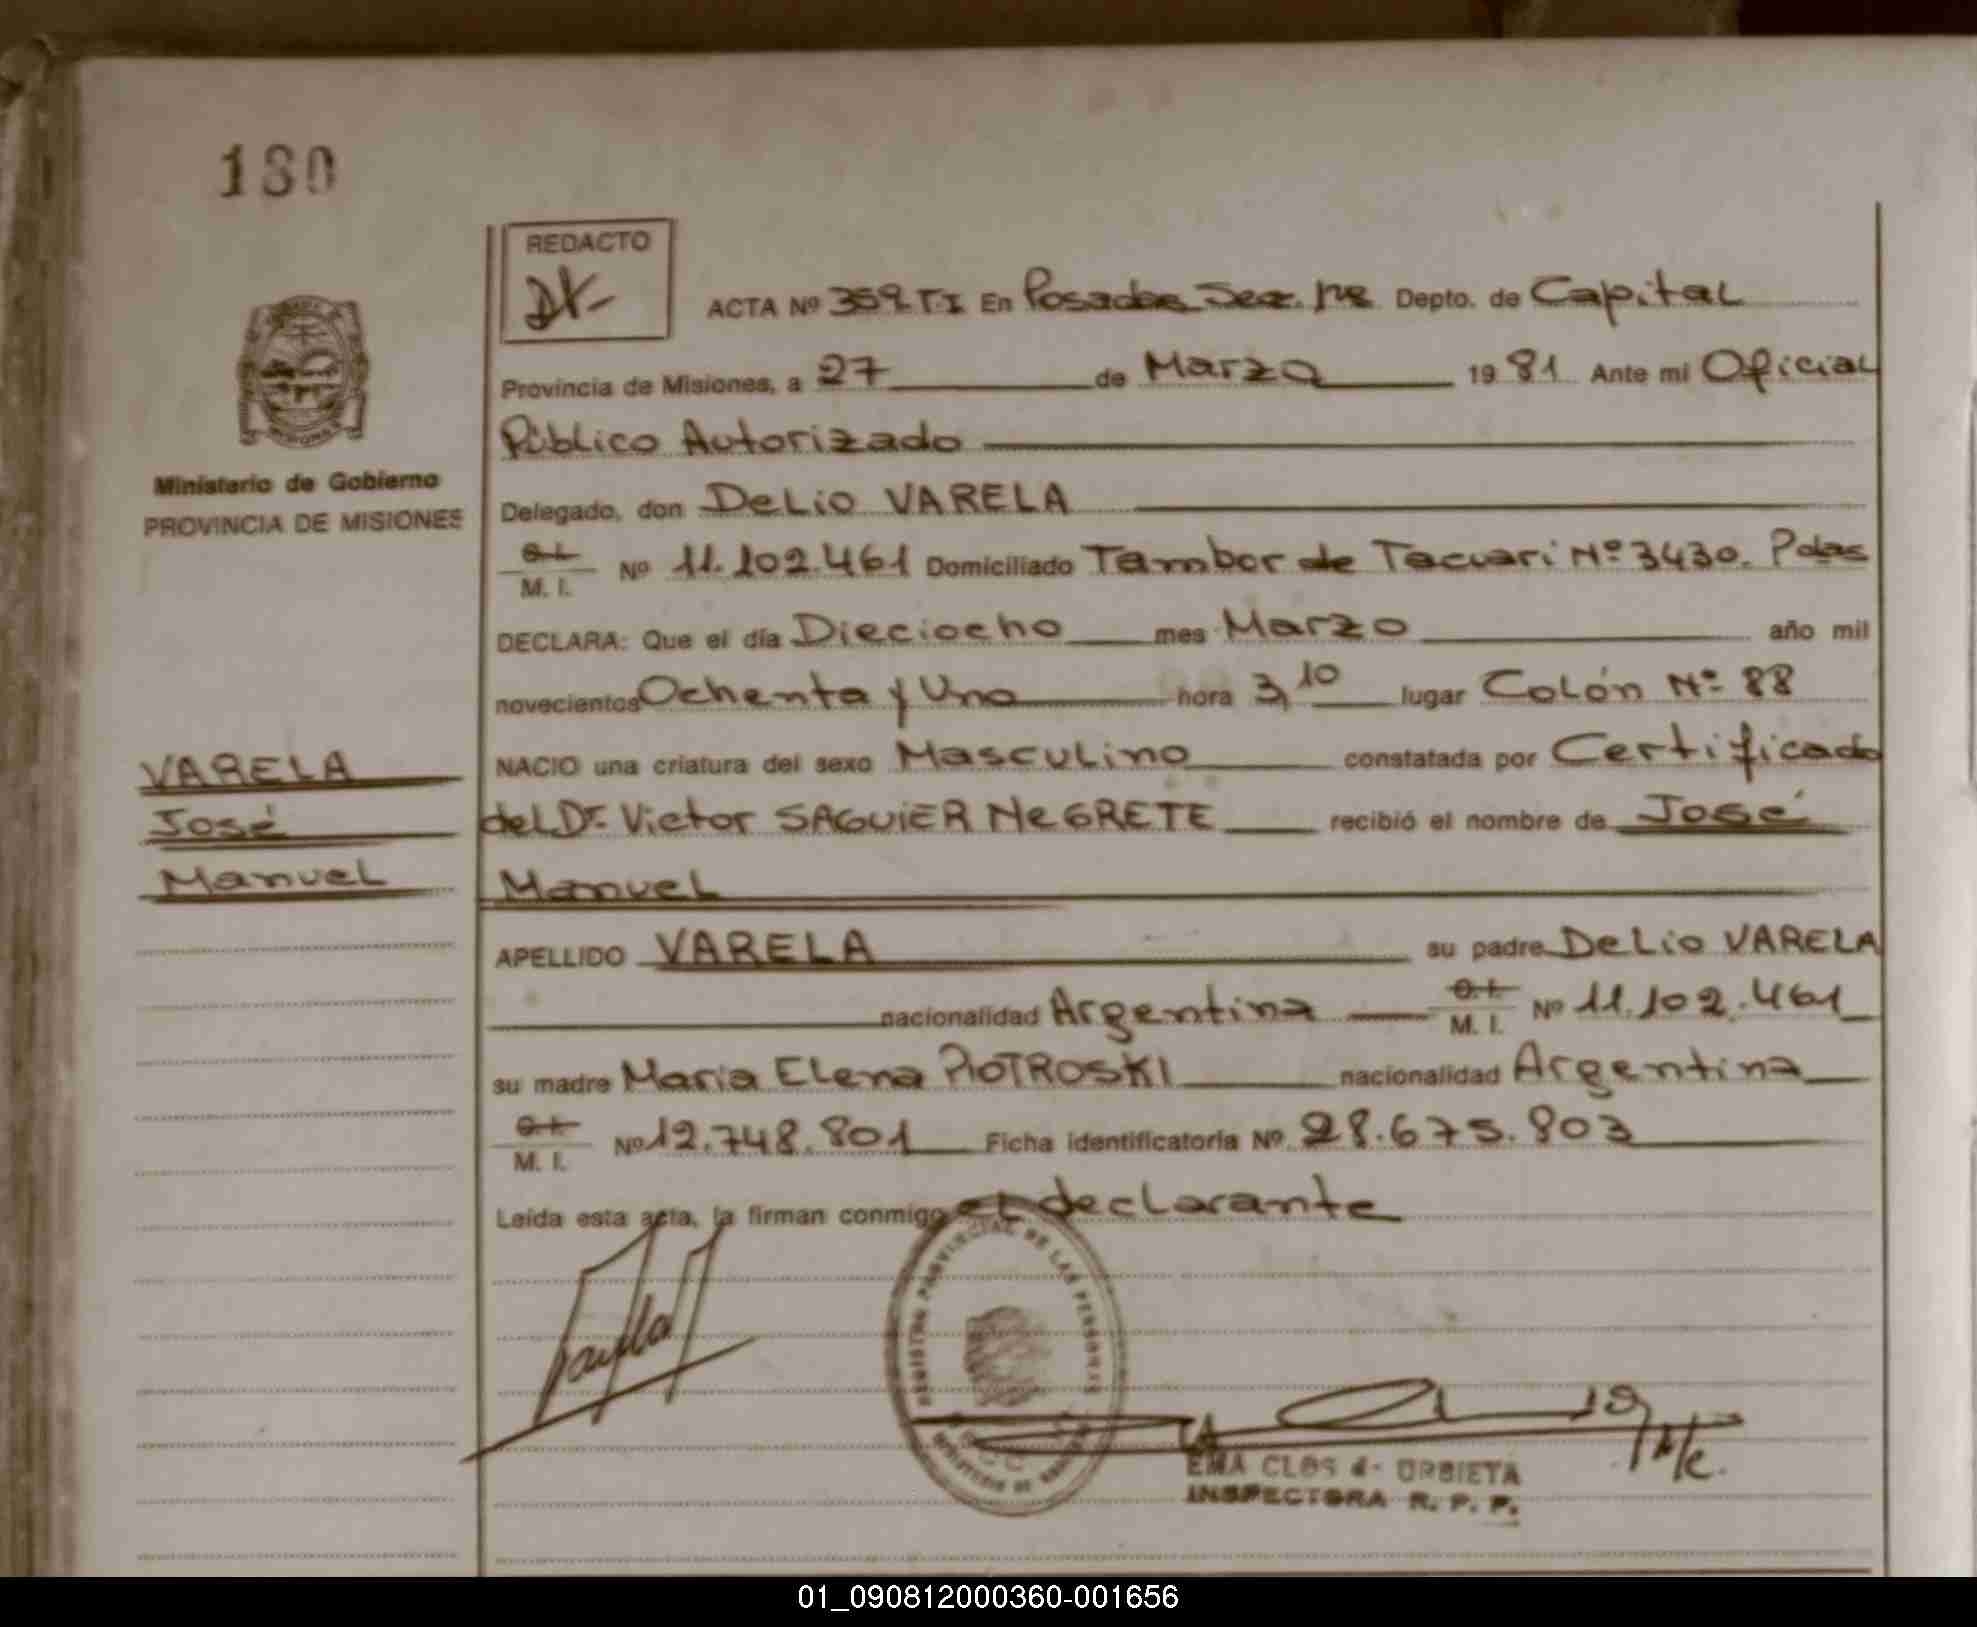 180
REDACTO
ACTA Nº 359.T.I En Posadas Sec. 1ra Depto. de Capital
Provincia de Misiones, a 27 de Marzo 19 81 Ante mi Oficial
Público Autorizado
Ministerio de Gobierno
PROVINCIA DE MISIONES
Delegado, don Delio VARELA
C.I.
M. I. Nº 11.102.461 Domiciliado Tambor de Tacuari Nº 3430. Pdas
DECLARA: Que el día Dieciocho mes Marzo año mil
novecientos Ochenta y Uno hora 3,10 lugar Colón Nº 88
VARELA
José
Manuel
NACIO una criatura del sexo Masculino constatada por Certificado
del Dr. Victor SAGUIER NEGRETE recibió el nombre de José
Manuel
APELLIDO VARELA su padre Delio VARELA
nacionalidad Argentina C.I.
M. I. Nº 11.102.461
su madre Maria Elena PIOTROSKI nacionalidad Argentina
C.I.
M. I. Nº 12.748.801 Ficha identificatoria Nº 28.675.803
Leída esta acta, la firman conmigo el declarante
REGISTRO PROVINCIAL DE LAS PERSONAS
EMA CLOS d- URBIETA
INSPECTORA R. P. P.
01_090812000360-001656